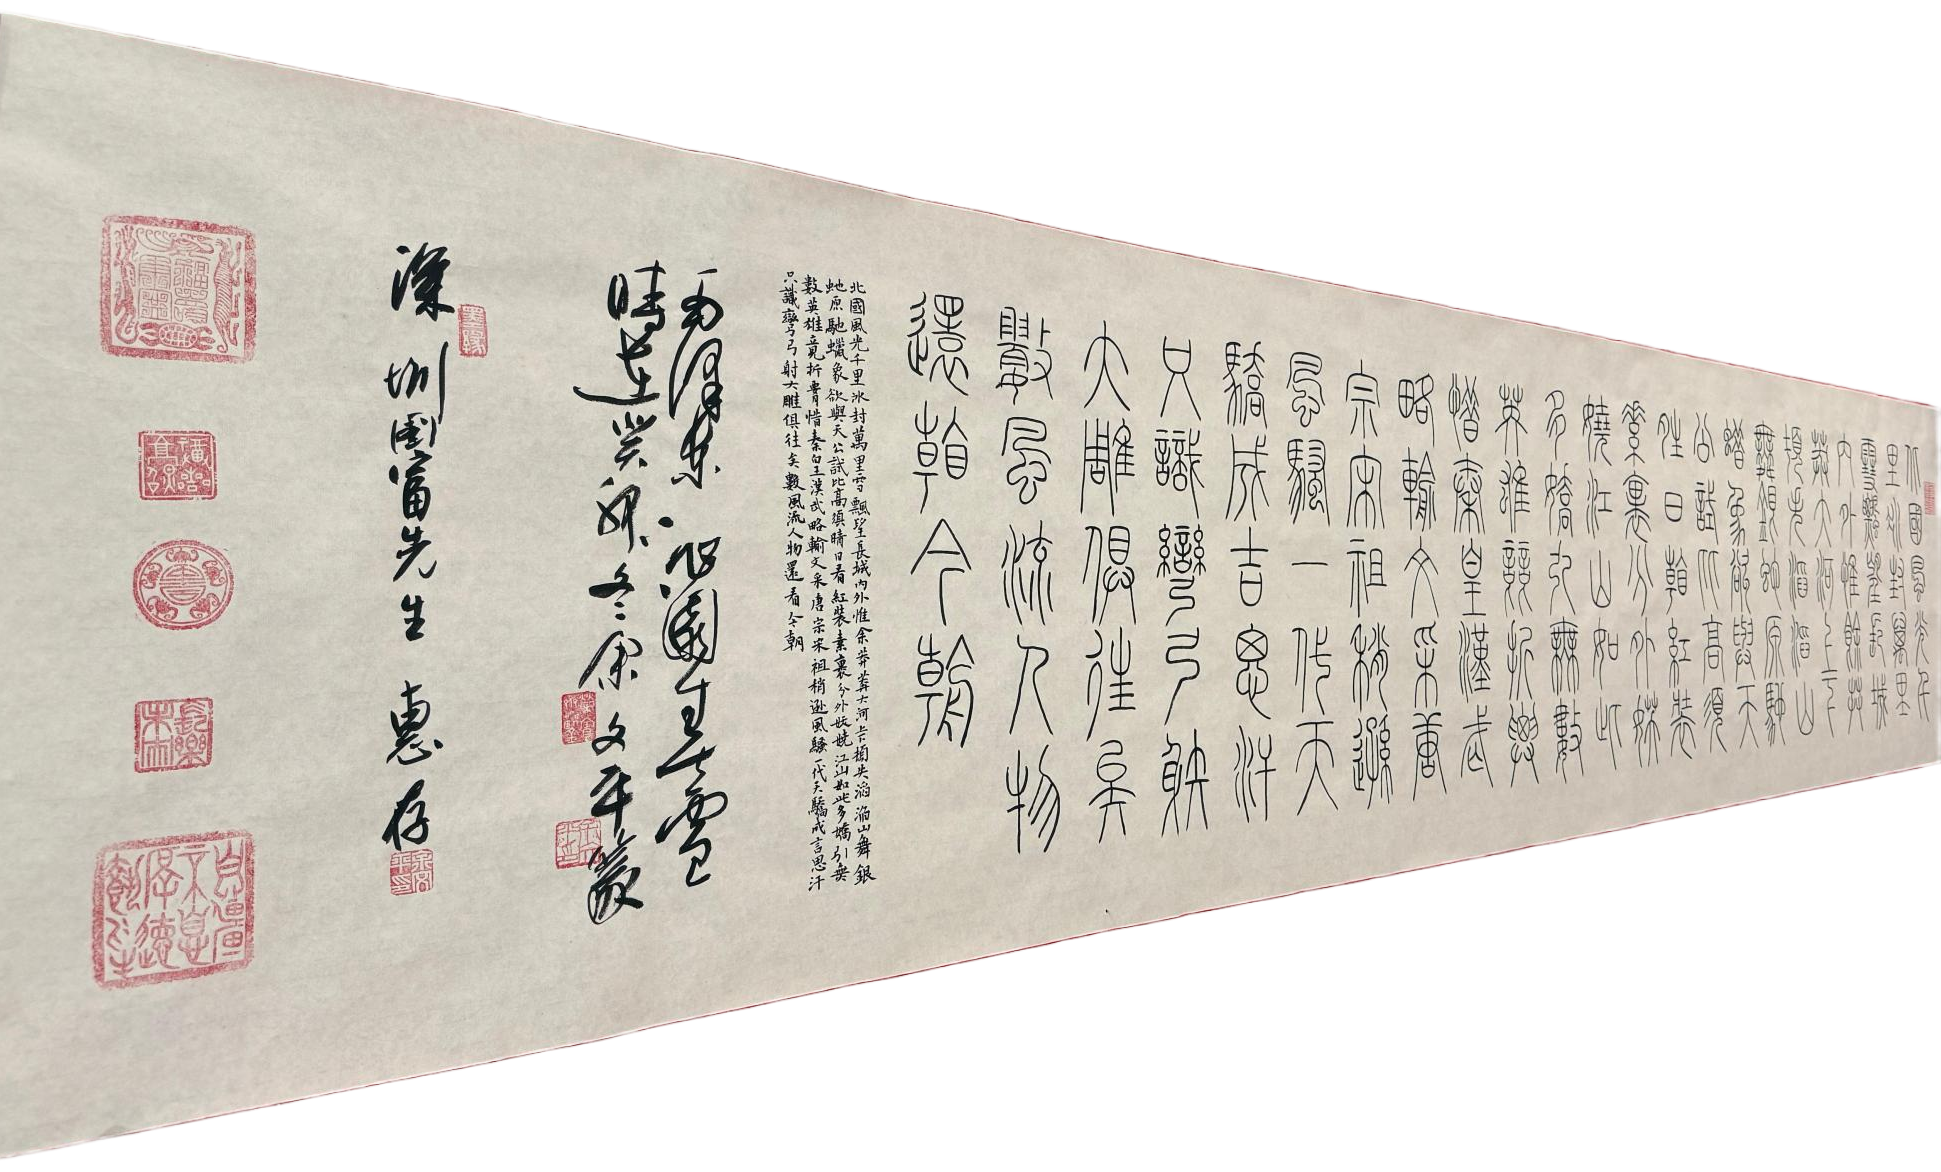 北國風光千
里冰封萬里
雪飄望長城
內外惟餘莽
莽大河上下
頓失滔滔山
舞銀蛇原馳
蠟象欲與天
公試比高須
晴日看紅裝
素裹分外妖
嬈江山如此
多嬌引無數
英雄競折腰
惜秦皇漢武
略輸文采唐
宗宋祖稍遜
風騷一代天
驕成吉思汗
只識彎弓射
大雕俱往矣
數風流人物
還看今朝
北國風光千里冰封萬里雪飄望長城內外惟余莽莽大河上下頓失滔滔山舞銀
蛇原馳蠟象欲與天公試比高須晴日看紅裝素裹分外妖嬈江山如此多嬌引無
數英雄竟折腰惜秦皇漢武略輸文采唐宗宋祖稍遜風騷一代天驕成吉思汗
只識彎弓射大雕俱往矣數風流人物還看今朝
毛澤東沁園春雪
時在癸卯冬末文平篆
墨緣
深圳劉富先生惠存
長樂未央
自彊不息厚德載物